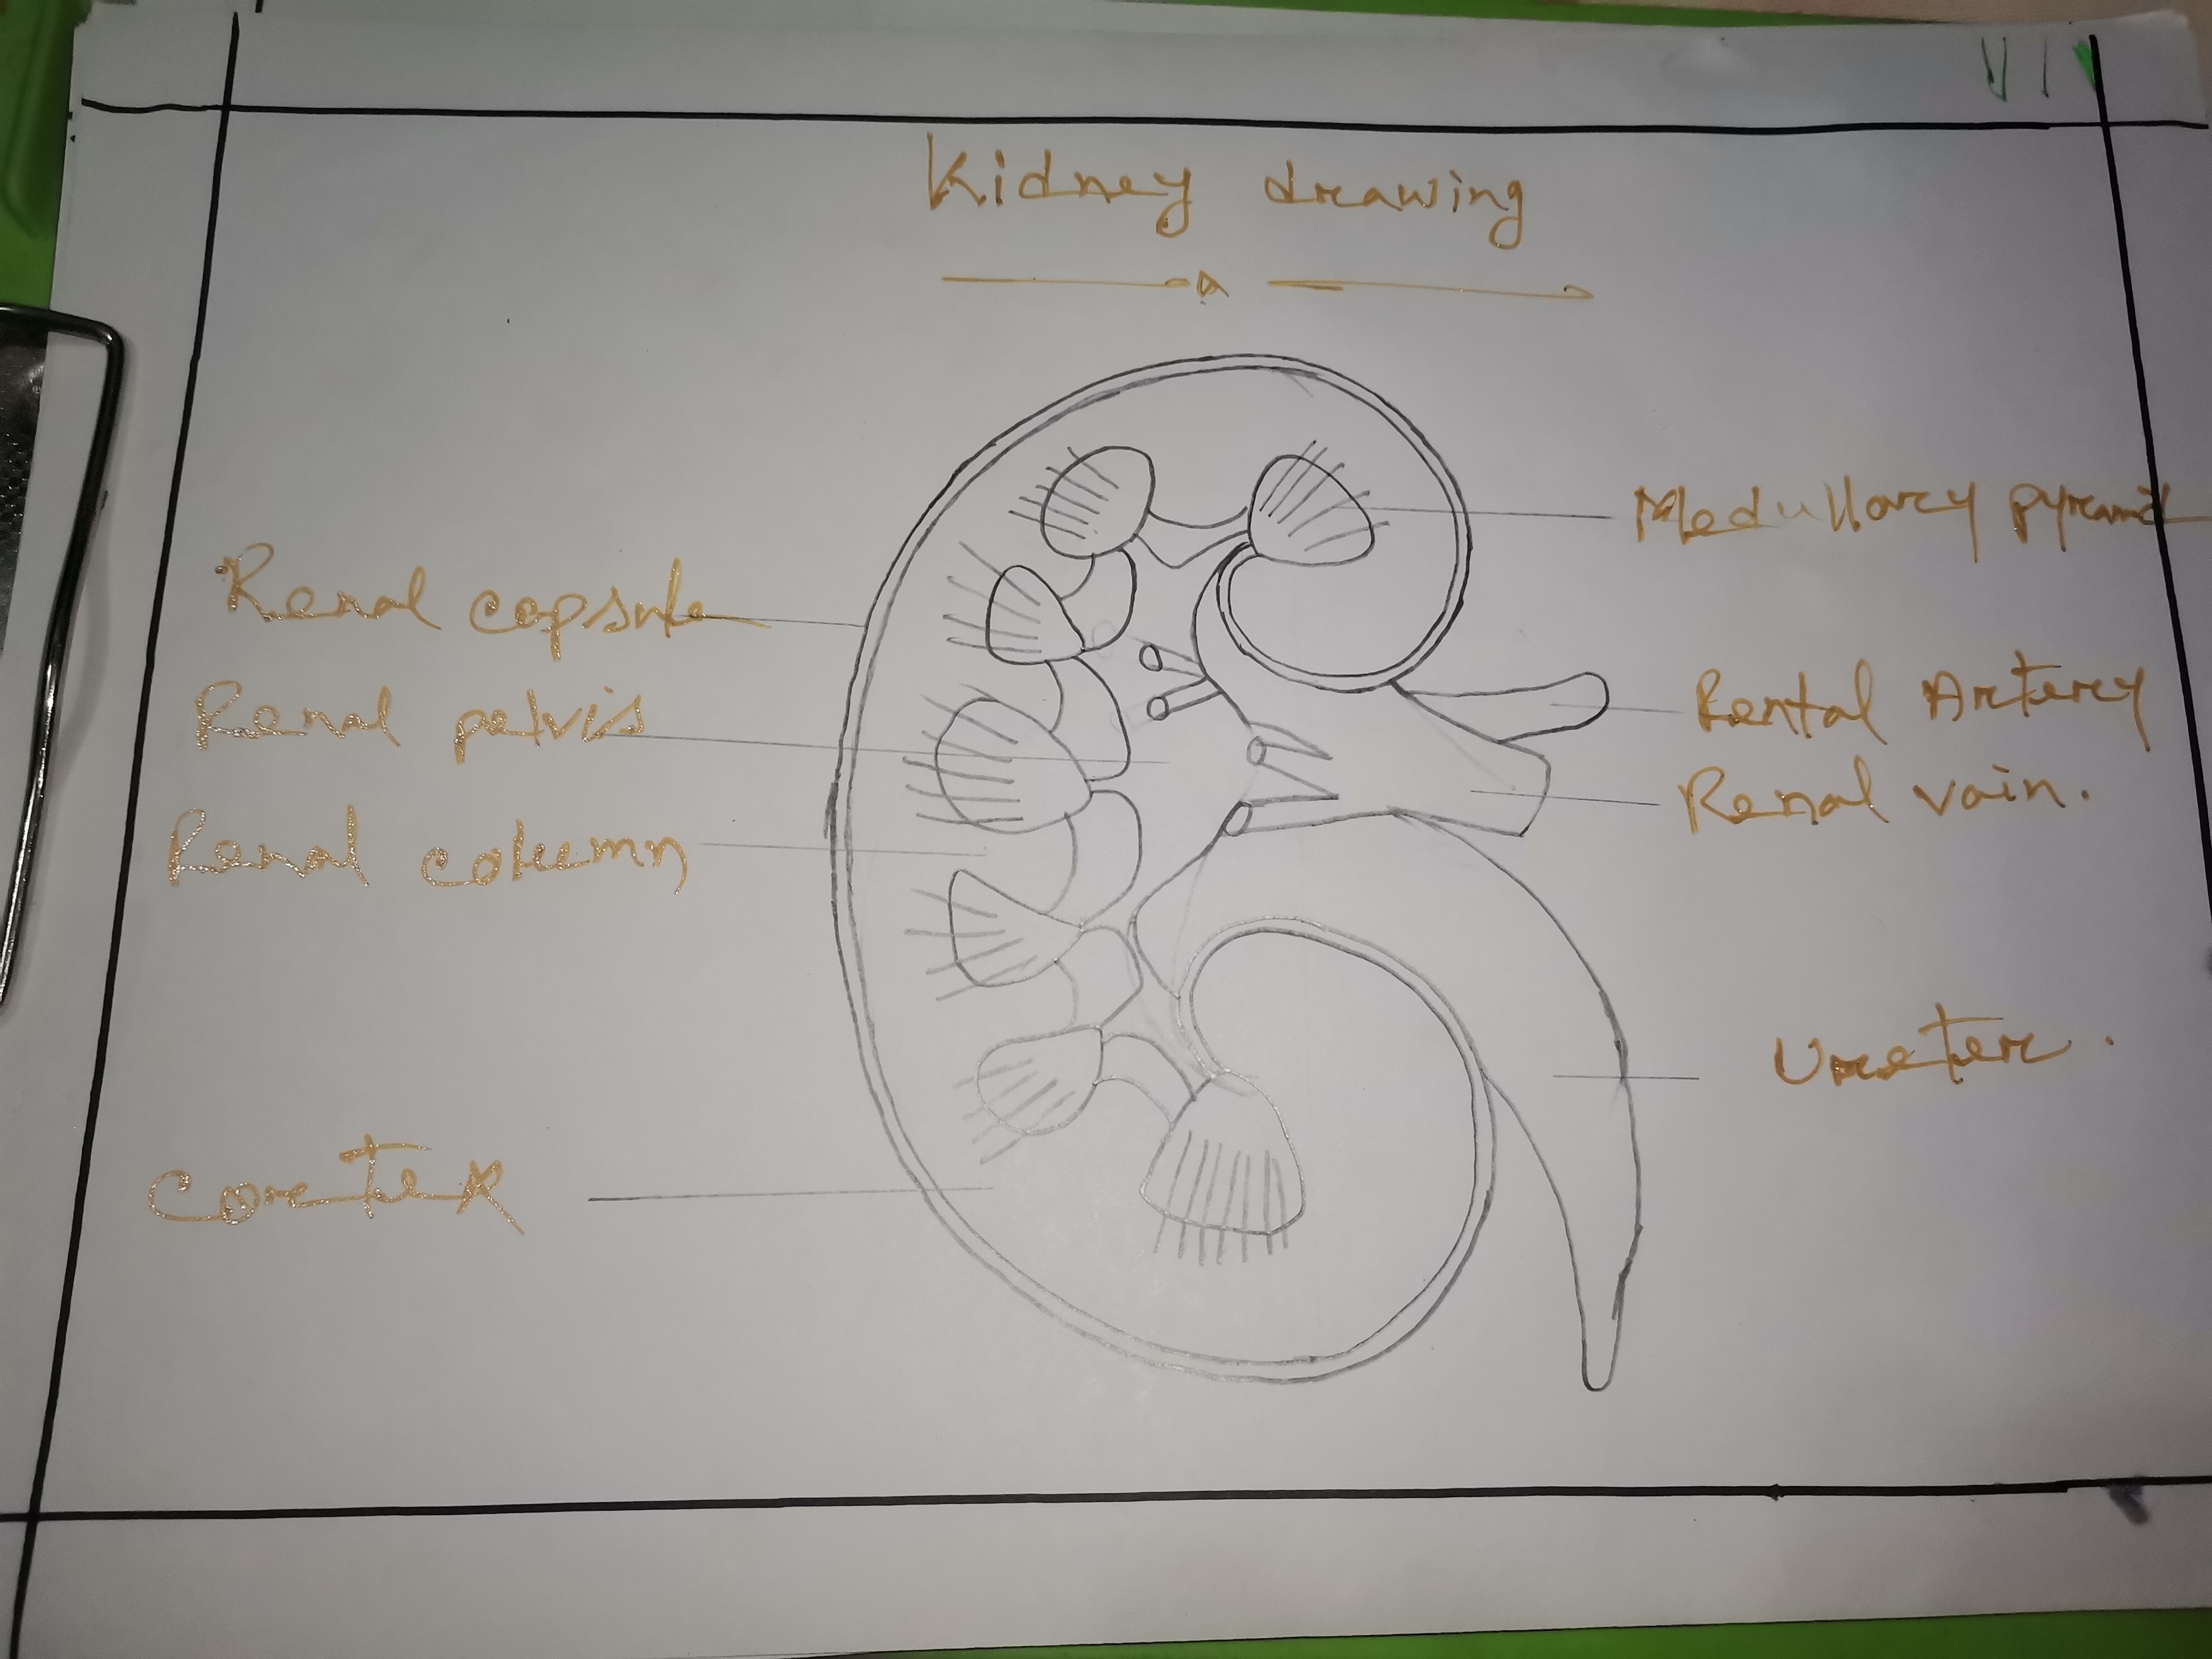 Kidney drawing
Medullary pyramid
Renal capsule
Rental Artery
Renal pelvis
Renal vain.
Renal column
Ureter.
Cortex